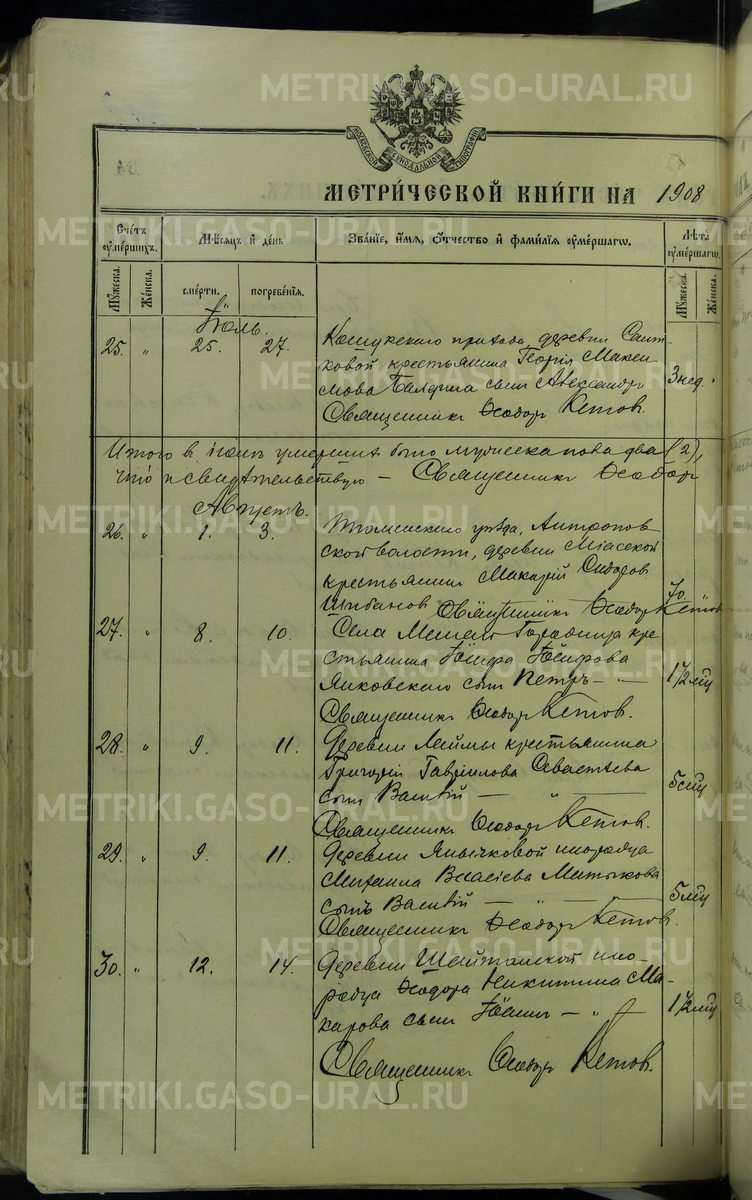 МЕТРИ́ЧЕСКОЙ КНИ́ГИ НА 1908
Сче́тъ ᲂу҆ме́ршихъ.
Мѣ́сѧцъ и҆ де́нь
Зва́нїе, и҆́мѧ, ѻ҆́тчество и҆ фами́лїѧ ᲂу҆ме́ршагѡ.
Лѣ́та ᲂу҆ме́ршагѡ.
Мꙋ́жеска.
Же́нска.
сме́рти.
погребе́нїѧ.
Мꙋ́жеска.
Же́нска.
Іюль.
25. " 25. 27. Кошукскаго прихода, деревни Саит-
ковой крестьянина Георгія Макси-
мова сынъ Александръ 3 нед.
Священникъ Ѳеодоръ Кетовъ.
Итого въ іюлѣ умершихъ было мужеска пола два (2),
что и свидѣтельствую — Священникъ Ѳеодоръ
Августъ.
26. " 1. 3. Тюменскаго уѣзда, Антропов
ской волости, деревни Міасской
крестьянинъ Макарій Сидоровъ
Шибановъ 70.
Священникъ Ѳеодоръ Кетовъ
27. " 8. 10. Села Городища кре
стьянина Іосифа Іосифова
Янковскаго сынъ Петръ — " — 1 1/2 мѣц
Священникъ Ѳеодоръ Кетовъ.
28. " 9. 11. Деревни крестьянина
Григорія Гавріилова Севастѣева
сынъ Василій — " — 5 мѣц
Священникъ Ѳеодоръ Кетовъ.
29. " 9. 11. Деревни Янычковой инородца
Михаила Власіева Митькова
сынъ Василій — " — 5 мѣц
Священникъ Ѳеодоръ Кетовъ.
30. " 12. 14. Деревни Шайтанской ино-
родца Ѳеодора Никитина Ма-
карова сынъ Іоаннъ — " — 1 1/2 мѣц
Священникъ Ѳеодоръ Кетовъ.
METRIKI.GASO-URAL.RU